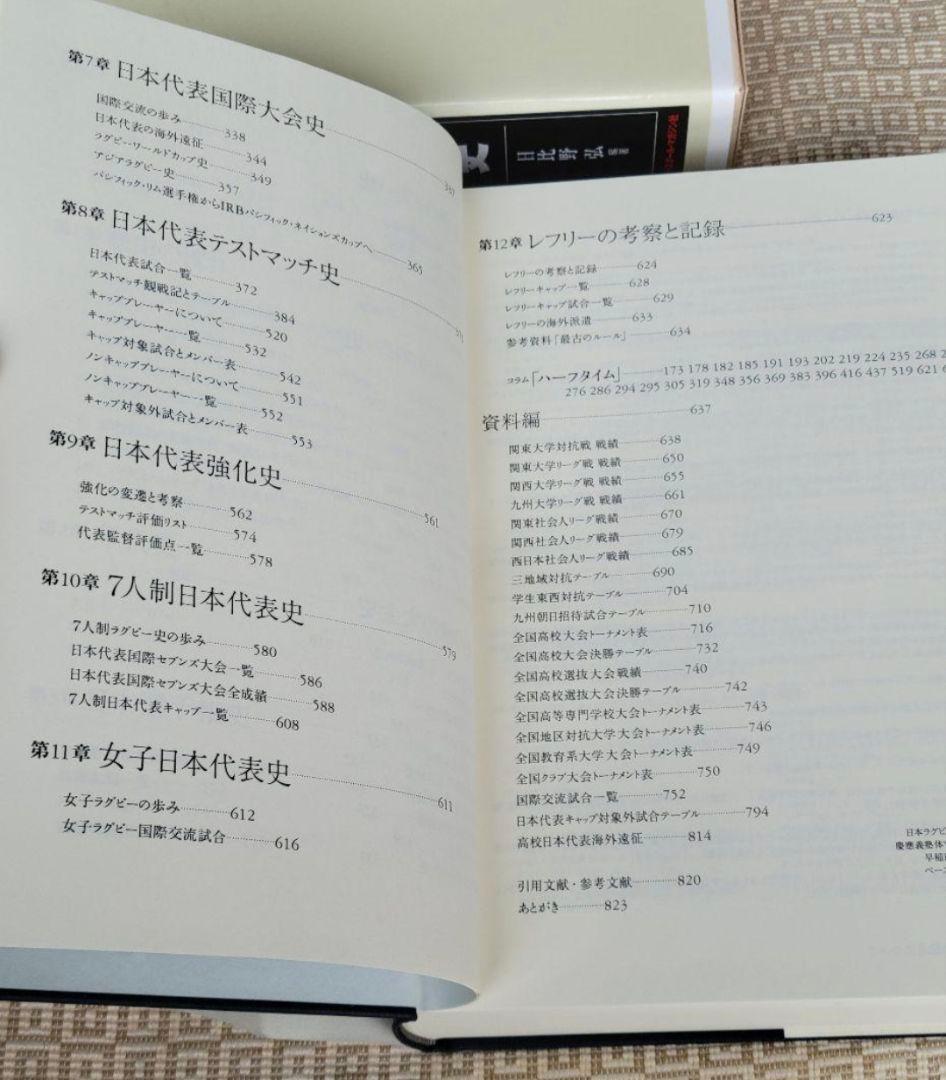 第7章 日本代表国際大会史
国際交流の歩み 338
日本代表の海外遠征 344
ラグビー・ワールドカップ史 349
アジアラグビー史 357
パシフィック・リム選手権からIRBパシフィック・ネイションズカップへ 365
第8章 日本代表テストマッチ史
日本代表試合一覧 372
テストマッチ観戦記とテーブル 384
キャッププレーヤーについて 520
キャッププレーヤー一覧 532
キャップ対象試合とメンバー表 542
ノンキャッププレーヤーについて 551
ノンキャッププレーヤー一覧 552
キャップ対象外試合とメンバー表 553
第9章 日本代表強化史 561
強化の変遷と考察 562
テストマッチ評価リスト 574
代表監督評価点一覧 578
第10章 7人制日本代表史 579
7人制ラグビー史の歩み 580
日本代表国際セブンズ大会一覧 586
日本代表国際セブンズ大会全成績 588
7人制日本代表キャップ一覧 608
第11章 女子日本代表史 611
女子ラグビーの歩み 612
女子ラグビー国際交流試合 616
史
日比野 弘 編著
ベースボール・マガジン社
第12章 レフリーの考察と記録 623
レフリーの考察と記録 624
レフリーキャップ一覧 628
レフリーキャップ試合一覧 629
レフリーの海外派遣 633
参考資料「最古のルール」 634
コラム「ハーフタイム」 173 178 182 185 191 193 202 219 224 235 268
276 286 294 295 305 319 348 356 369 383 396 416 437 519 621
資料編 637
関東大学対抗戦 戦績 638
関東大学リーグ戦 戦績 650
関西大学リーグ戦 戦績 655
九州大学リーグ戦 戦績 661
関東社会人リーグ戦績 670
関西社会人リーグ戦績 679
西日本社会人リーグ戦績 685
三地域対抗テーブル 690
学生東西対抗テーブル 704
九州朝日招待試合テーブル 710
全国高校大会トーナメント表 716
全国高校大会決勝テーブル 732
全国高校選抜大会戦績 740
全国高校選抜大会決勝テーブル 742
全国高等専門学校大会トーナメント表 743
全国地区対抗大学大会トーナメント表 746
全国教育系大学大会トーナメント表 749
全国クラブ大会トーナメント表 750
国際交流試合一覧 752
日本代表キャップ対象外試合テーブル 794
高校日本代表海外遠征 814
引用文献・参考文献 820
あとがき 823
日本ラグビ
慶應義塾体
早稲
ベー